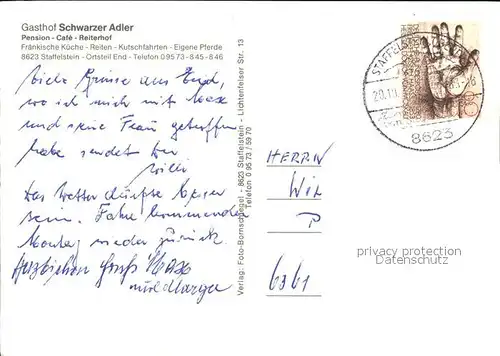 Gasthof Schwarzer Adler
Pension - Café - Reiterhof
Fränkische Küche - Reiten - Kutschfahrten - Eigene Pferde
8623 Staffelstein - Ortsteil End - Telefon 09573-845-846
Viele Grüsse aus End,
wo ich mich mit Max
und seine Frau getroffen
habe sendet Dir
Willi
Das Wetter dürfte besser
sein. Fahre kommenden
Montag wieder zurück.
Herzlichen Gruß Max
und Marga
Verlag: Foto-Bornschlegel - 8623 Staffelstein - Lichtenfelser Str. 13
Telefon 0 95 73 / 59 70
STAFFELS
20.10.
8623
60
HERRN
Wil
P
6361
privacy protection
Datenschutz